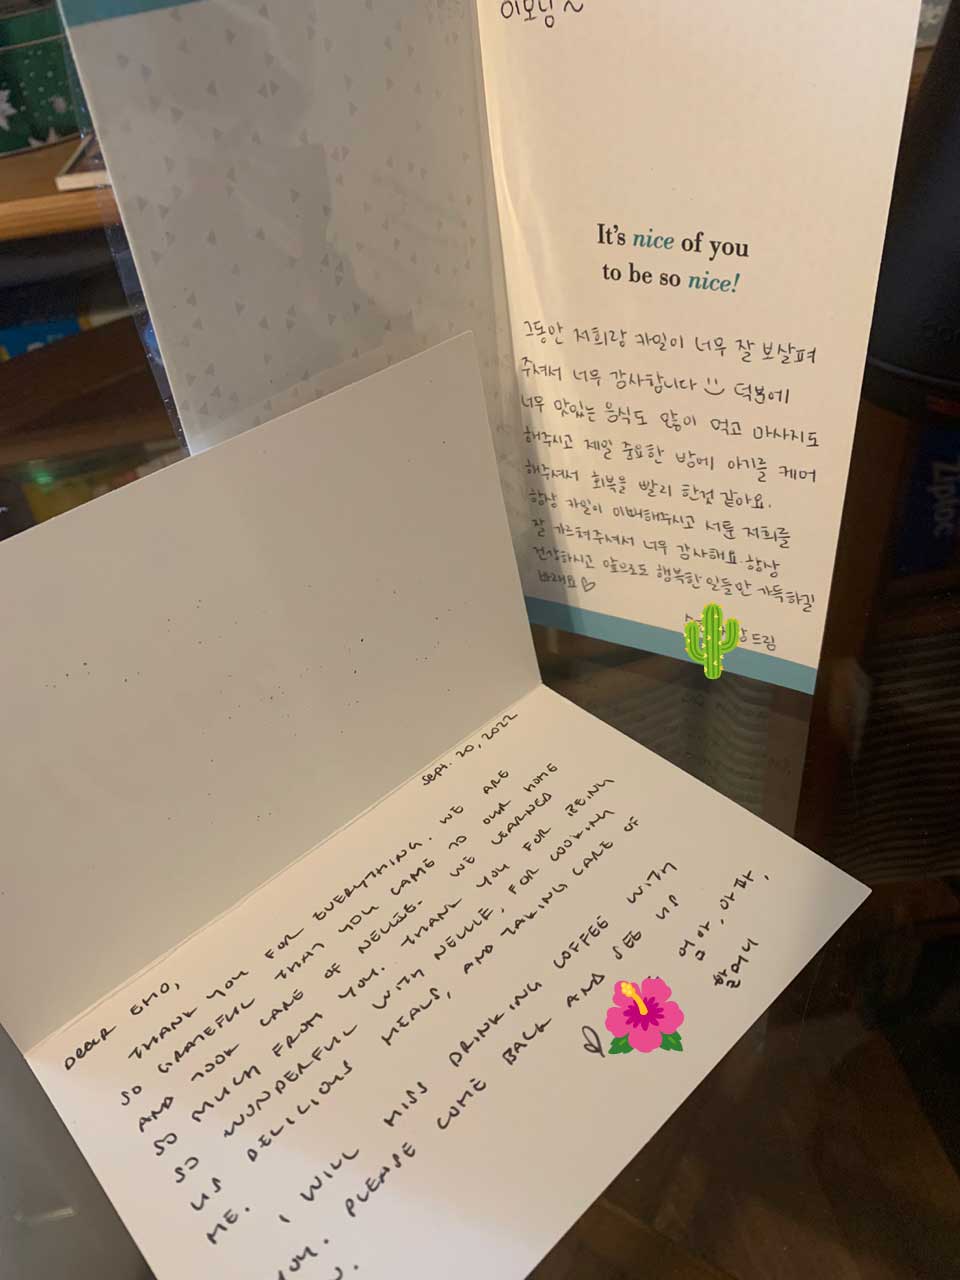 이모님~
It's nice of you
to be so nice!
그동안 저희랑 카일이 너무 잘 보살펴
주셔서 너무 감사합니다 덕분에
너무 맛있는 음식도 많이 먹고 마사지도
해주시고 제일 중요한 밤에 아기를 케어
해주셔서 회복을 빨리 한것 같아요.
항상 카일이 이뻐해주시고 서툰 저희를
잘 가르쳐주셔서 너무 감사해요. 항상
건강하시고 앞으로도 행복한 일들만 가득하길
바래요♡
드림
Sept. 20, 2022
DEAR EMO,
THANK YOU FOR EVERYTHING. WE ARE
SO GRATEFUL THAT YOU CAME TO OUR HOME
AND TOOK CARE OF NELLIE. WE LEARNED
SO MUCH FROM YOU. THANK YOU FOR BEING
SO WONDERFUL WITH NELLIE, FOR COOKING
US DELICIOUS MEALS, AND TAKING CARE OF
ME.
I WILL MISS DRINKING COFFEE WITH
YOU. PLEASE COME BACK AND SEE US
엄마, 아빠,
할머니
Liptor